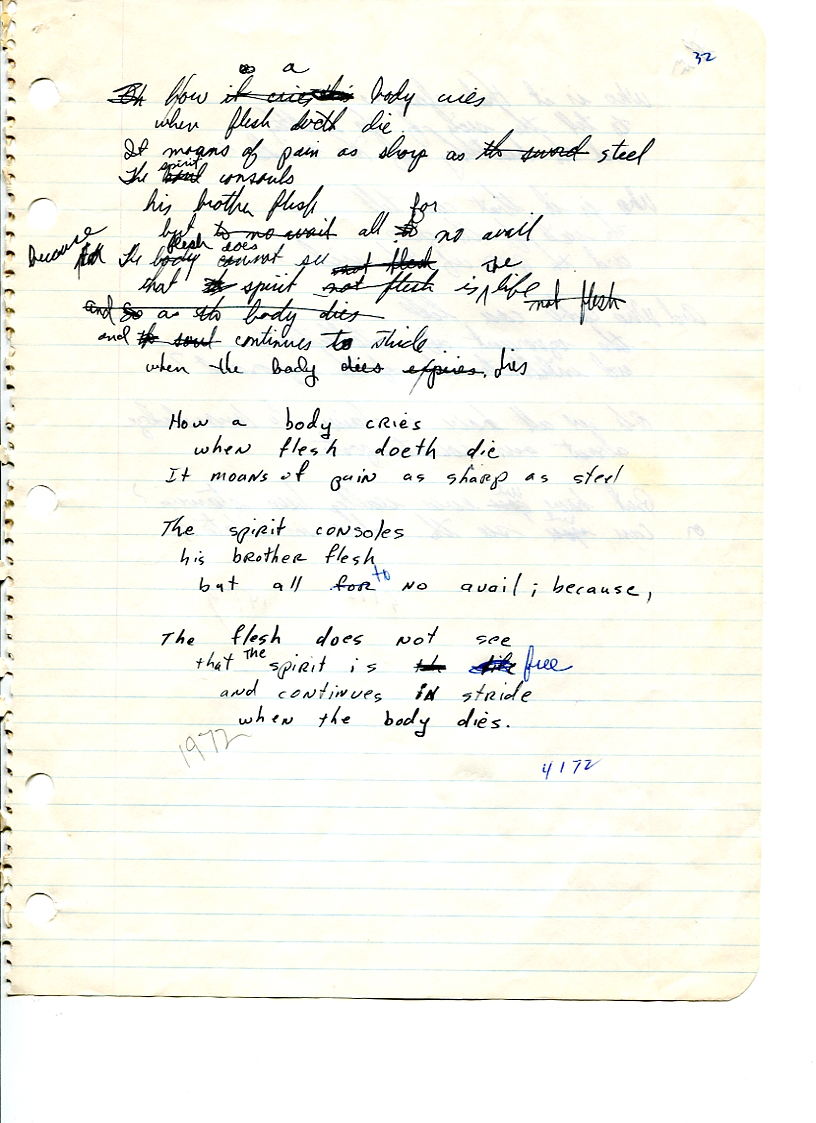 32
a
How it cries this body cries
when flesh doeth die.
It moans of pain as sharp as th sword steel
spirit
The soul consouls
his brother flesh
for
but to no avail all to no avail
flesh does
because The body cannot see not flesh the
that spirit not flesh is life not flesh
and so as the body dies
and th soul continues to stride
when the body dies expires. dies
How a body cries
when flesh doeth die
It moans of pain as sharp as steel
The spirit consoles
his brother flesh
but all for to no avail; because,
The flesh does not see
that the spirit is free
and continues in stride
when the body dies.
1972
4172